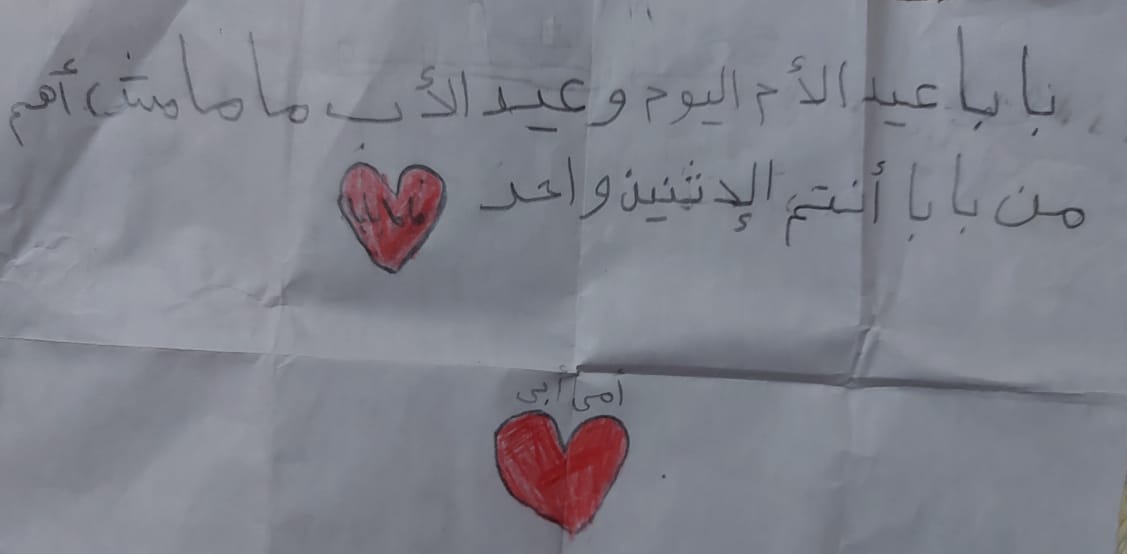 بابا عيد الأم اليوم وعيد الأب ماما مش أهم
من بابا أنتم الإثنين واحد
بابا
أمى أبى